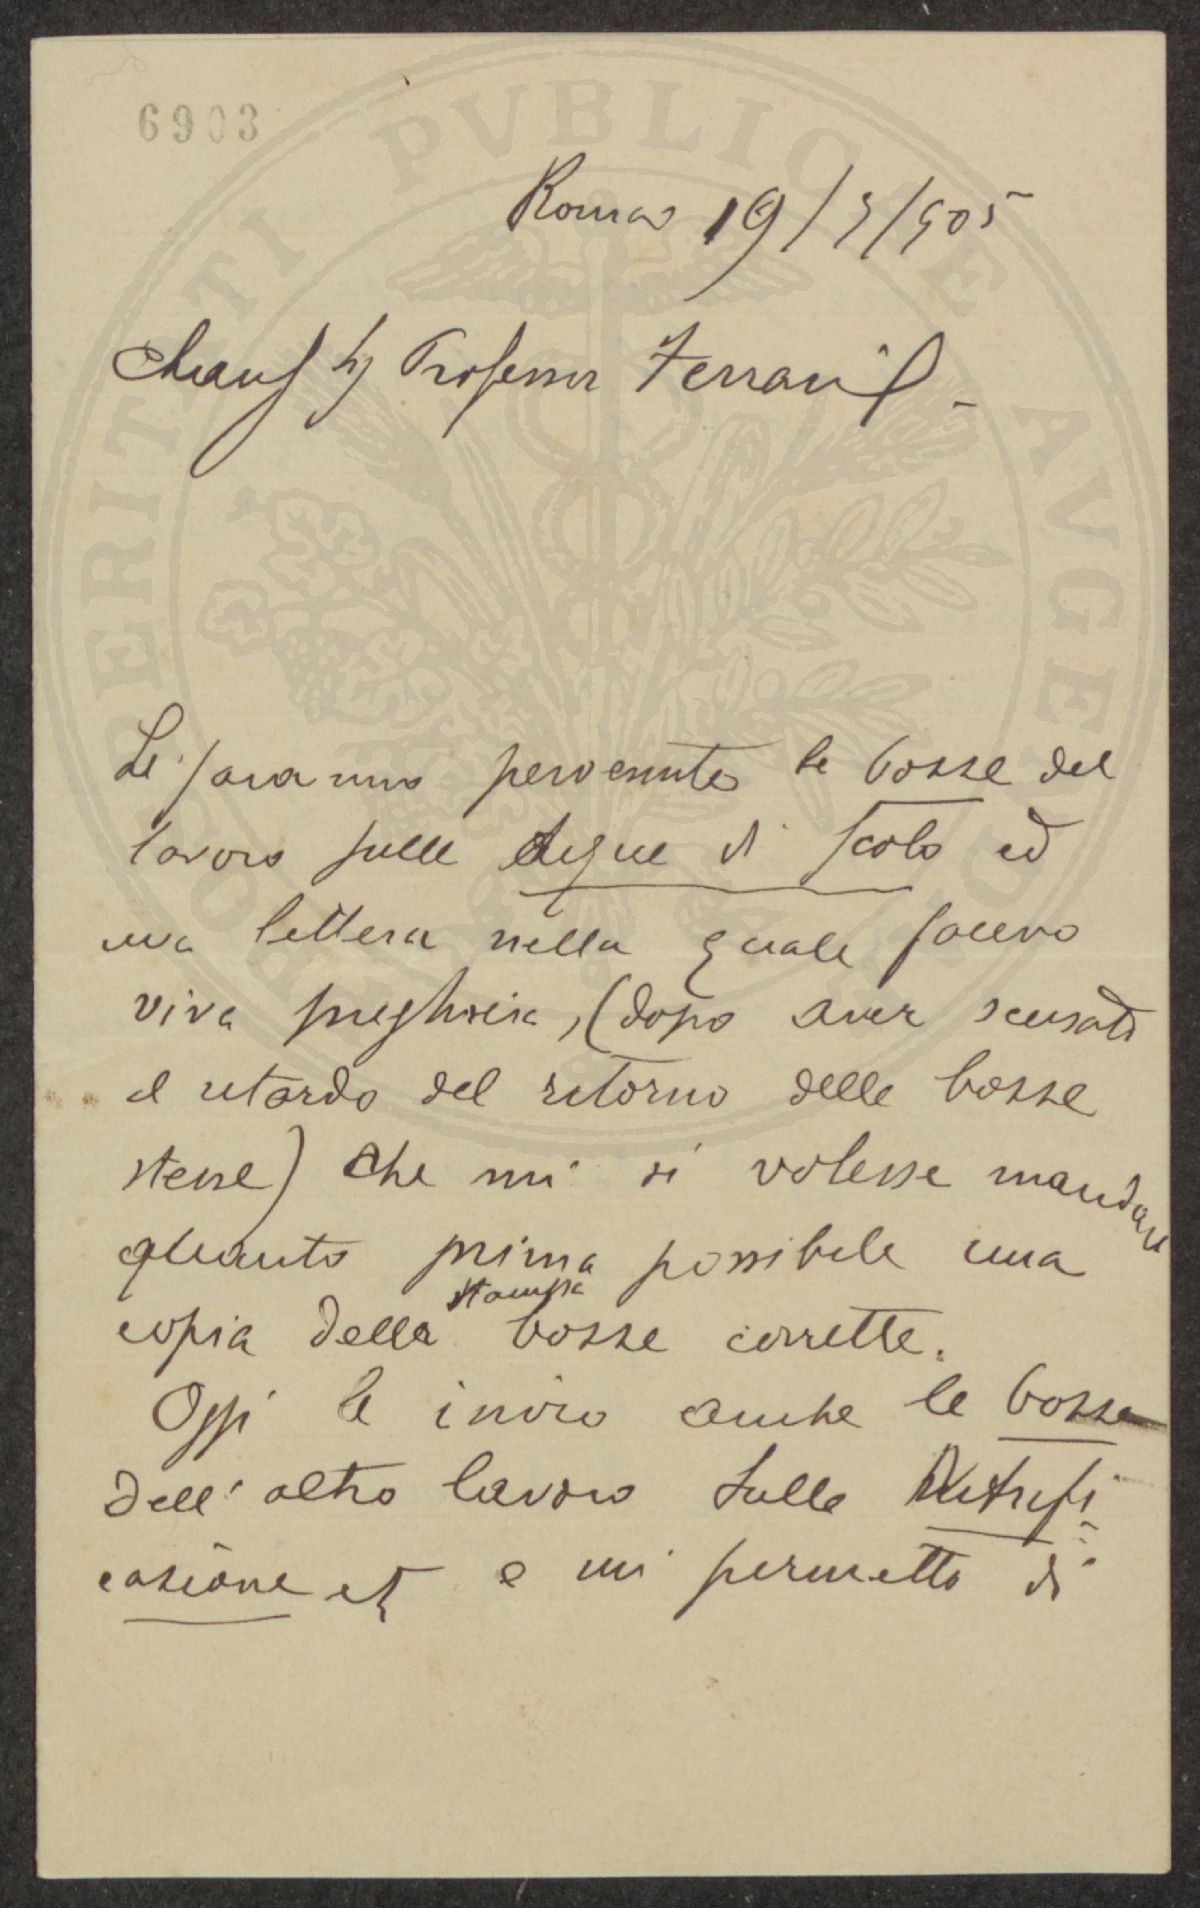 6903
PROSPERITATI PVBLICAE AVGENDAE
Roma 19/3/905
Professor Ferraris
Le saranno pervenute le bozze del
lavoro sulle Acque di Scolo ed
una lettera nella quale facevo
viva preghiera, (dopo aver scusato
il ritardo del ritorno delle bozze
stesse) che mi si volesse mandare
quanto prima possibile una
stampa
copia della bozze corrette.
Oggi le invio anche le bozze
dell'altro lavoro sulla Nitrifi
cazione etc e mi permetto di